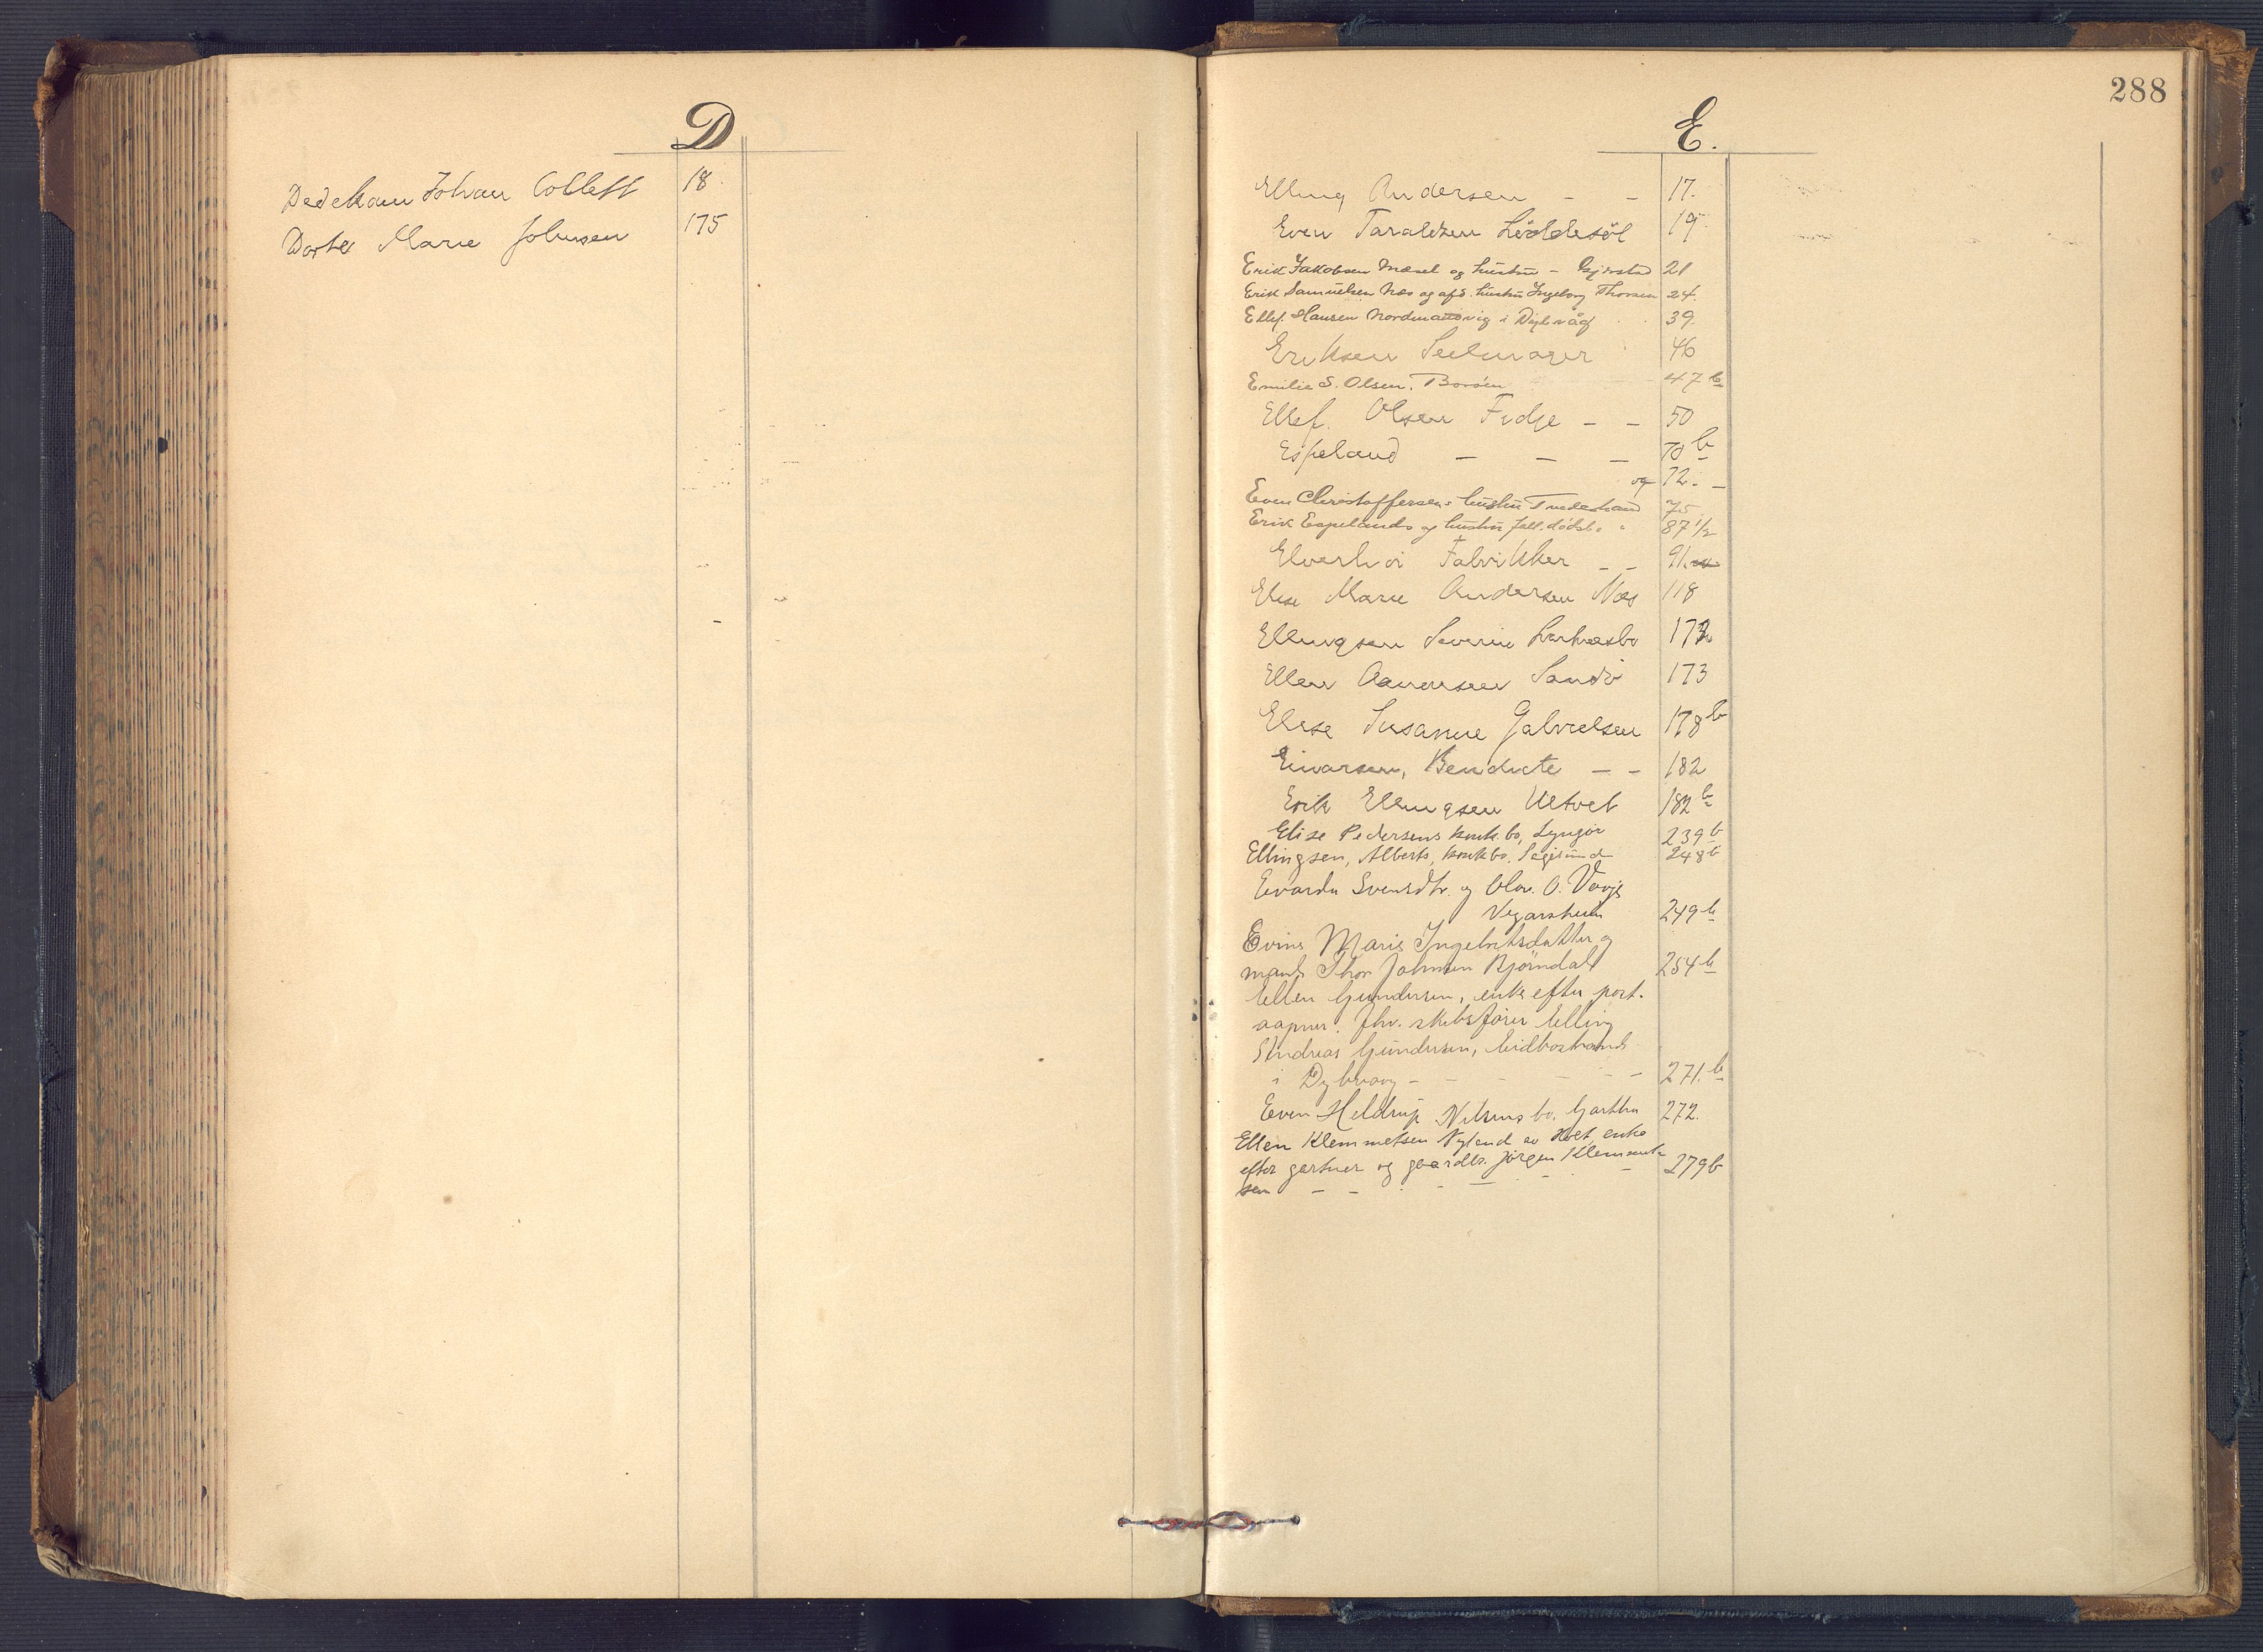 D
Dedekam Johan Collett 18.
Dorte Marie Johnsen 175
288
E.
Elling Andersen - - 17.
Even Taraldsen Løddesøl 19.
Erik Jakobsen Mæsel og hustru - Gjerstad 21
Erik Samuelsen Næs og afd. hustru Ingeborg Thorsen 24.
Ellef Hansen Nordmandvig i Dybvåg 39.
Eriksen Seilmager 46
Emilie S. Olsen. Borøen 47 b
Ellef. Olsen Fidje - - 50
Espeland - - - 70 b
og 72. -
Even Christoffersens hustru Tvedestrand 75
Erik Espelands og hustru fell. dødsbo 87 1/2
Elverhøi Fabrikker - - 91.
Elise Marie Andersen Næs 118
Ellingsen Severin 172
Ellen Aanonsen Sandø 173
Elise Susanne Gabrielsen 178 b
Eivarsen, Benedicte - - 182
Erik Ellingsen Ultvet 182 b
Elise Pedersens konk. bo, Lyngør 239 b
Ellingsen, Alberts, konkbo. 248 b
Eivarda Svensdtr. og Olav. O. Vaaje
Vegarsheien 249 b
Evine Marie Ingebretsdatter og
mand Thor Johnsen Bjørndal 254 b
Ellen Gundersen, enke efter post-
aapner. fhv. skibsfører Elling
Andreas Gundersen, Eidbostrand
i Dybvaag - - - - - - 271. b
Even Heldrup Nilsens bo. Gartha 272.
Ellen Klemmetsen Nyland av Holt, enke
efter gartner og gaardbr. Jørgen Klemmet-
sen - - - - - - - 279 b